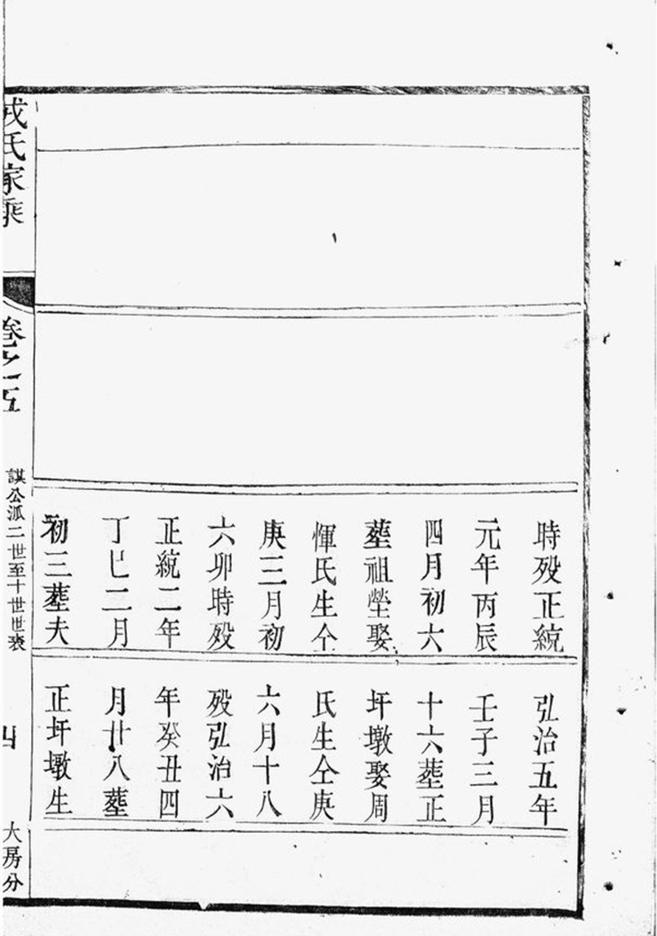 時歿正統
元年丙辰
四月初六
塟祖塋娶
惲氏生仝
庚三月初
六卯時歿
正統二年
丁巳二月
初三塟夫
弘治五年
壬子三月
十六塟正
圩墩娶周
氏生仝庚
六月十八
歿弘治六
年癸丑四
月廿八塟
正圩墩生
戎氏家乘
卷之五
謀公派二世至十世世表
四
大房分